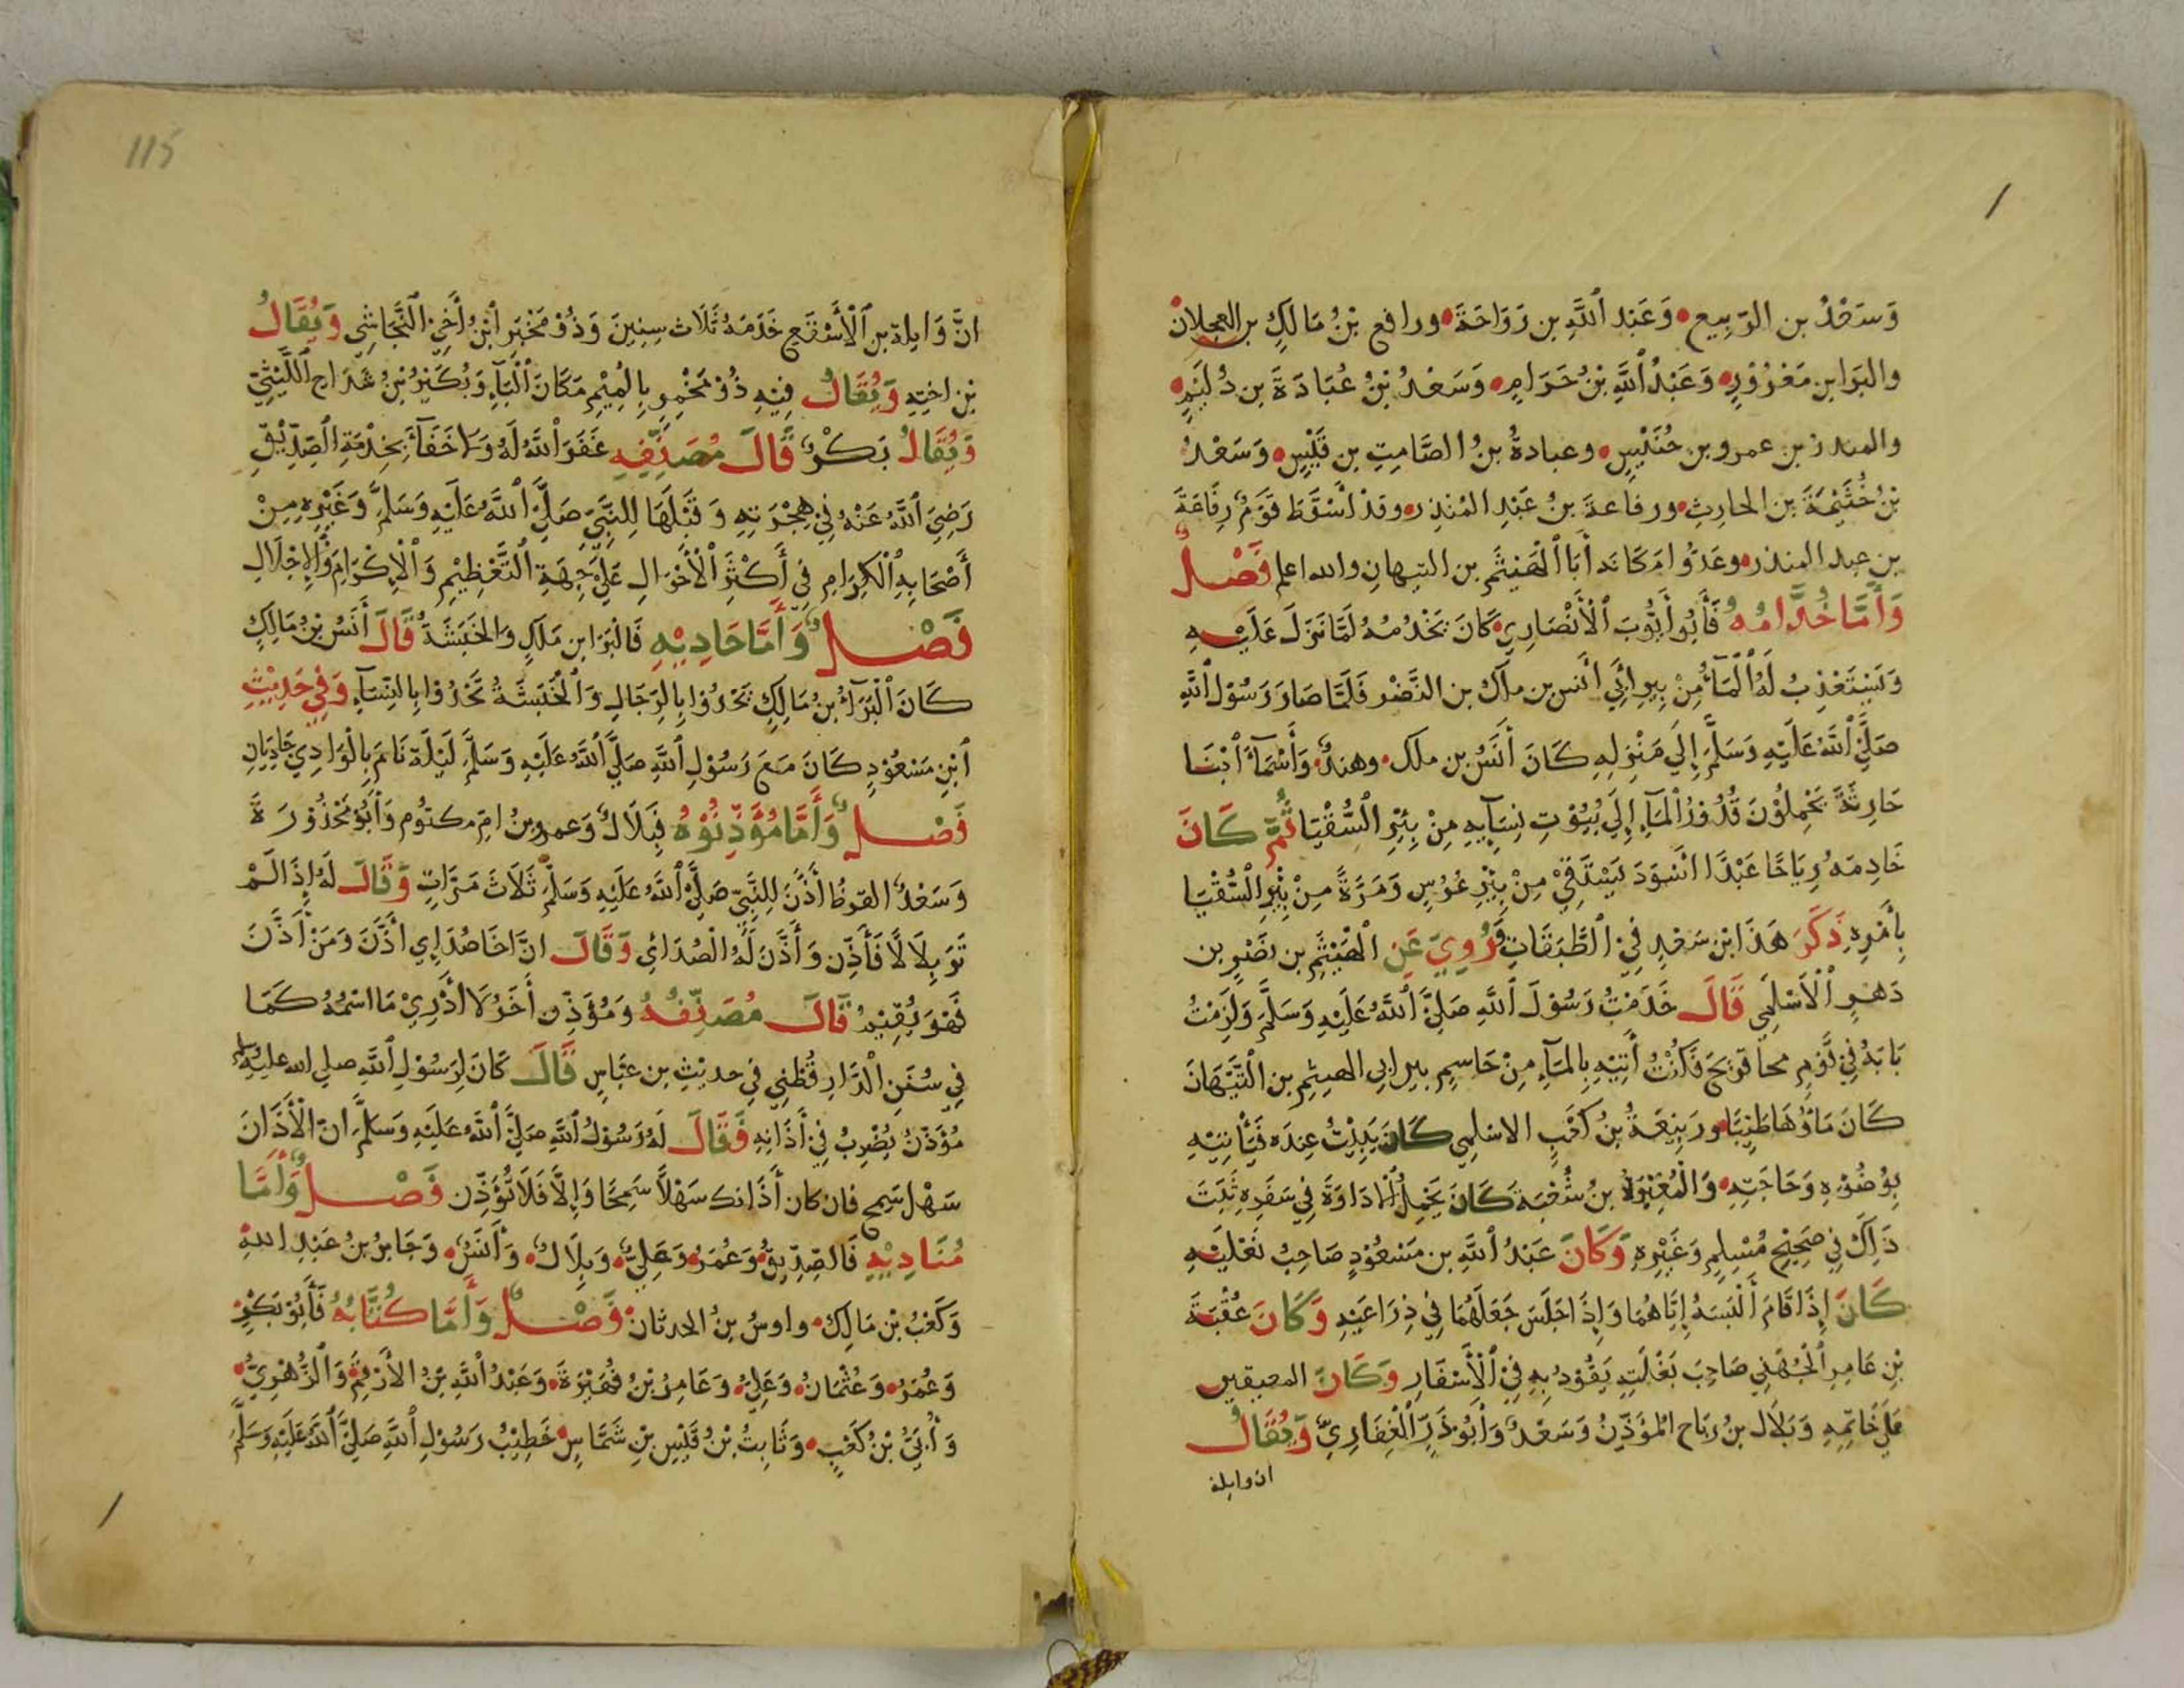 وَسَعْدُ بن الرَّبِيع وَعَبْد اللَّهِ بن رَوَاحَةَ ورافع بْنُ مَالِكِ بن العجلان
والبَرَا بن مَعْرُوْرٍ وَعَبْدُ اللَّهِ بْنُ حَرَامٍ وَسَعْدُ بْنُ عُبَادَةَ بن دُلَيْمٍ
والمنذر بن عمرو بن خُنَيْسٍ وعبادةُ بنُ الصَّامِتِ بن قَيْسٍ وَسَعْدُ
بْنُ خُثَيْمَةَ بن الحارِثِ ورفاعة بنُ عَبْدِ المُنذِر وقدْ اسْقَطَ قَوْمٌ رِفَاعَةَ
بن عبد المنذر وعَدُّوا مَكَانَه أَبَا الْهَيْثَمِ بن التيهانِ والله اعلم فَصْلٌ
وَأَمَّا خُدَّامُهُ فَأَبُو أَيُّوبَ الْأَنْصَارِي كَانَ يَخْدُمُهُ لَمَّا نَزَلَ عَلَيْهِ
وَيَسْتَعْذِبُ لَهُ الْمَآءَ مِنْ بِيرِ ابِي انَس بن ملك بن النَّضْر فَلَمَّا صَارَ رَسُوْل اللَّهِ
صَلَّى اللَّهُ عَلَيْهِ وَسَلَّمَ إِلَى مَنْزِلِهِ كَانَ أَنَسُ بن ملك وهندٌ وَأَسْمَآءُ ابْنَا
حَارِثَةَ يَحْمِلُوْنَ قُدُوْرَ الْمَآءِ إِلَى بُيُوْتِ نِسَآيِهِ مِنْ بِئْرِ السُّقْيَا ثُمَّ كَانَ
خَادِمَهُ رِيَاحًا عَبْدًا اسْوَدَ يَسْتَقِيْ مِنْ بِيْرِ غَرْسٍ وَمَرَةً مِنْ بِيْرِ السُّقْيَا
بِأَمْرِهِ ذَكَرَ هَذَا ابْن سَعْدٍ فِي الطَّبَقَاتِ وَرُوِيَ عَنِ الْهَيْثَمِ بن نَصْرٍ بن
دَهْرٍ الْأَسْلَمِي قَالَ خَدَمْتُ رَسُوْلَ اللَّهِ صَلَّى اللَّهُ عَلَيْهِ وَسَلَّمَ وَلَزِمْتُ
بَابَهُ فِي قَوْمٍ محاويجَ فَكُنْتُ أَتِيْهِ بِالمَآءِ مِنْ جَاسِمٍ بير ابى الهيثم بن التَّيَّهَانَ
كَانَ مَاؤُهَا طَيِّبًا ورَبِيْعَةُ بنُ كَعْبٍ الاسْلمِي كَانَ يَبِيْتُ عِندَه فَيَأْتِيْهِ
بِوُضُوْءِهِ وَحَاجَتِهِ وَالْمُغِيْرَةُ بنُ شُعْبَةَ كَانَ يَحْمِلُ الْادَاوَةَ فِي سَفَرِهِ ثَبَتَ
ذَلِكَ فِي صَحِيْحِ مُسْلِمٍ وَغَيْرِهِ وَكَانَ عَبْدُ اللَّهِ بن مَسْعُوْدٍ صَاحِبُ نَعْلَيْهِ
كَانَ إِذَا قَامَ أَلْبَسَهُ إِيَّاهُمَا وَإِذَا جَلَسَ جَعَلَهُمَا فِي ذِرَاعَيْهِ وَكَانَ عُقْبَةَ
بْنِ عَامِرِ الْجُهَنِي صَاحِبَ بَغْلَتِهِ يَقُوْدُ بِهِ فِي الْأَسْفَارِ وَكَانَ المعيقيب
عَلَى خَاتِمِهِ وَبَلَال بنُ رَبَاح المُؤَذِّنُ وَسَعْدٌ وَأَبُوْ ذَرِّ الْغِفَارِيّ وَيُقَالُ
ان وايلة
115
انَّ وَايِلة بن الْأَسْقَعِ خَدَمَهُ ثَلَاث سِنِينَ وَذُوْ مَخْبَرٍ ابْنُ أَخِي النَّجَاشِي وَيُقَالُ
بْن اختِهِ وَيُقَالُ فِيْهِ ذُوْ مَخْمِرٍ بِالْمِيْمِ مَكَانَ الْبَآءِ وَبُكَيْرُ بْنُ شَدَّاح اللَّيْثِيّ
وَيُقَالُ بَكْرٌ قَالَ مُصَنِّفِهِ غَفَرَ اللَّهُ لَهُ وَلَا خَفَآءَ بِخِدْمَةِ الصِّدِّيْقِ
رَضِيَ اللَّهُ عَنْهُ فِي هِجْرَتِهِ وَقَبْلَهَا لِلنَّبِيّ صَلَّى اللَّهُ عَلَيْهِ وَسَلَّمَ وَغَيْرِهِ مِنْ
أَصْحَابِهِ الْكِرَامِ فِي أَكْثَرِ الْأَحْوَالِ عَلَى جِهَةِ التَّعْظِيْمِ وَالْإِكْرَامِ وَالْإِجْلَالِ
فَصْلٌ وَأَمَّا حَادِيْهِ فَالبَرَا بن مَلَكٍ وَالحَبَشَةُ قَالَ أَنَسُ بْنُ مَالِكٍ
كَانَ الْبَرَآءُ بنُ مَالِكٍ يَحْدُوْا بِالرِّجَالِ وَالْحَبَشَةُ تَحْدُوْا بِالنِّسَآءِ وَفِي حَدِيْثِ
ابْنِ مَسْعُوْدٍ كَانَ مَعَ رَسُوْلِ اللَّهِ صَلَّى اللَّهُ عَلَيْهِ وَسَلَّمَ لَيْلَةَ نَامَ بِالْوَادِي حَادِيَانِ
فَصْلٌ وَأَمَّا مُؤَذِّنُوْهُ فَبِلَالٌ وَعمرو بنُ امِّ مكتوُم وَأَبُوْ مَحْذُوْرَةَ
وَسَعْدُ القرظُ أَذَّنَ لِلنَّبِيِّ صَلَّى اللَّهُ عَلَيْهِ وَسَلَّمَ ثَلَاثَ مَرَّاتٍ وَقَالَ لَهُ إِذَا لَمْ
تَرَ بِلَالًا فَأَذِّن وَأَذَّنَ لَهُ الْصُدَائِ وَقَالَ انَّ اخَا صُدَايِ اذَّنَ وَمَنْ أَذَّنَ
فَهْوَ يُقِيْمُ قَالَ مُصَنِّفُهُ وَمُؤَذِّن أَخَرُ لَا أَدْرِيْ مَا اسْمُهُ كَمَا
فِي سُنَنِ الْدَّارِقُطْنِي فِي حديْثِ بن عبَّاسٍ قَالَ كَانَ لِرَسُوْلِ اللَّهِ صلى الله عليه وسلم
مُؤَذّنٌ يُطْرِبُ فِي أَذَانِهِ فَقَالَ لَهُ رَسُوْلُ اللَّهِ صَلَّى اللَّهُ عَلَيْهِ وَسَلَّمَ انّ الْأَذَانَ
سَهْل سَمِح فان كان أَذَانك سَهْلاً سَمِحًا وَإِلَّا فَلَا تُؤَذِّن فَصْلٌ وَأَمَّا
مُنَادِيْهِ فَالصِّدِّيقُ وَعُمَرُ وَعَلِيٌّ وَبِلَالٌ وَأَنَسٌ وَجَابِرُ بنُ عَبْدِ اللهِ
وَكَعْبُ بْنِ مَالِك واوسُ بنُ الحدثان فَصْلٌ وَأَمَّا كُتَّابُهُ فَأَبُوْ بَكْرٍ
وَعُمَرُ وَعُثْمَانُ وَعَلِيٌّ وَعَامِرُ بْنُ فُهَيْرَةَ وَعَبْدُ اللَّهِ بْنُ الأَرْقَمْ وَالْزُّهْرِيُّ
وَأُبَيُّ بْنُ كَعْبٍ وَثَابِتُ بْنُ قَيْسِ بْنِ شَمَّاسٍ خَطِيْبُ رَسُوْلِ اللَّهِ صَلَّى اللَّهُ عَلَيْهِ وَسَلَّمَ